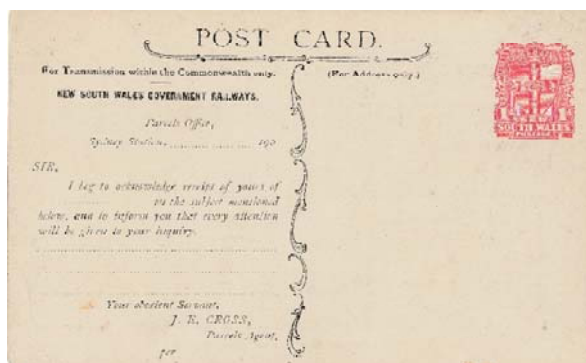 POST CARD.
For Transmission within the Commonwealth only.
(For Address only.)
NEW SOUTH WALES GOVERNMENT RAILWAYS.
Parcels Office,
Sydney Station, .......................... 190
SIR,
I beg to acknowledge receipt of yours of
.................... on the subject mentioned
below, and to inform you that every attention
will be given to your inquiry.
Your obedient Servant,
J. R. CROSS,
Parcels Agent.
per
1 1
SOUTH WALES
POSTAGE